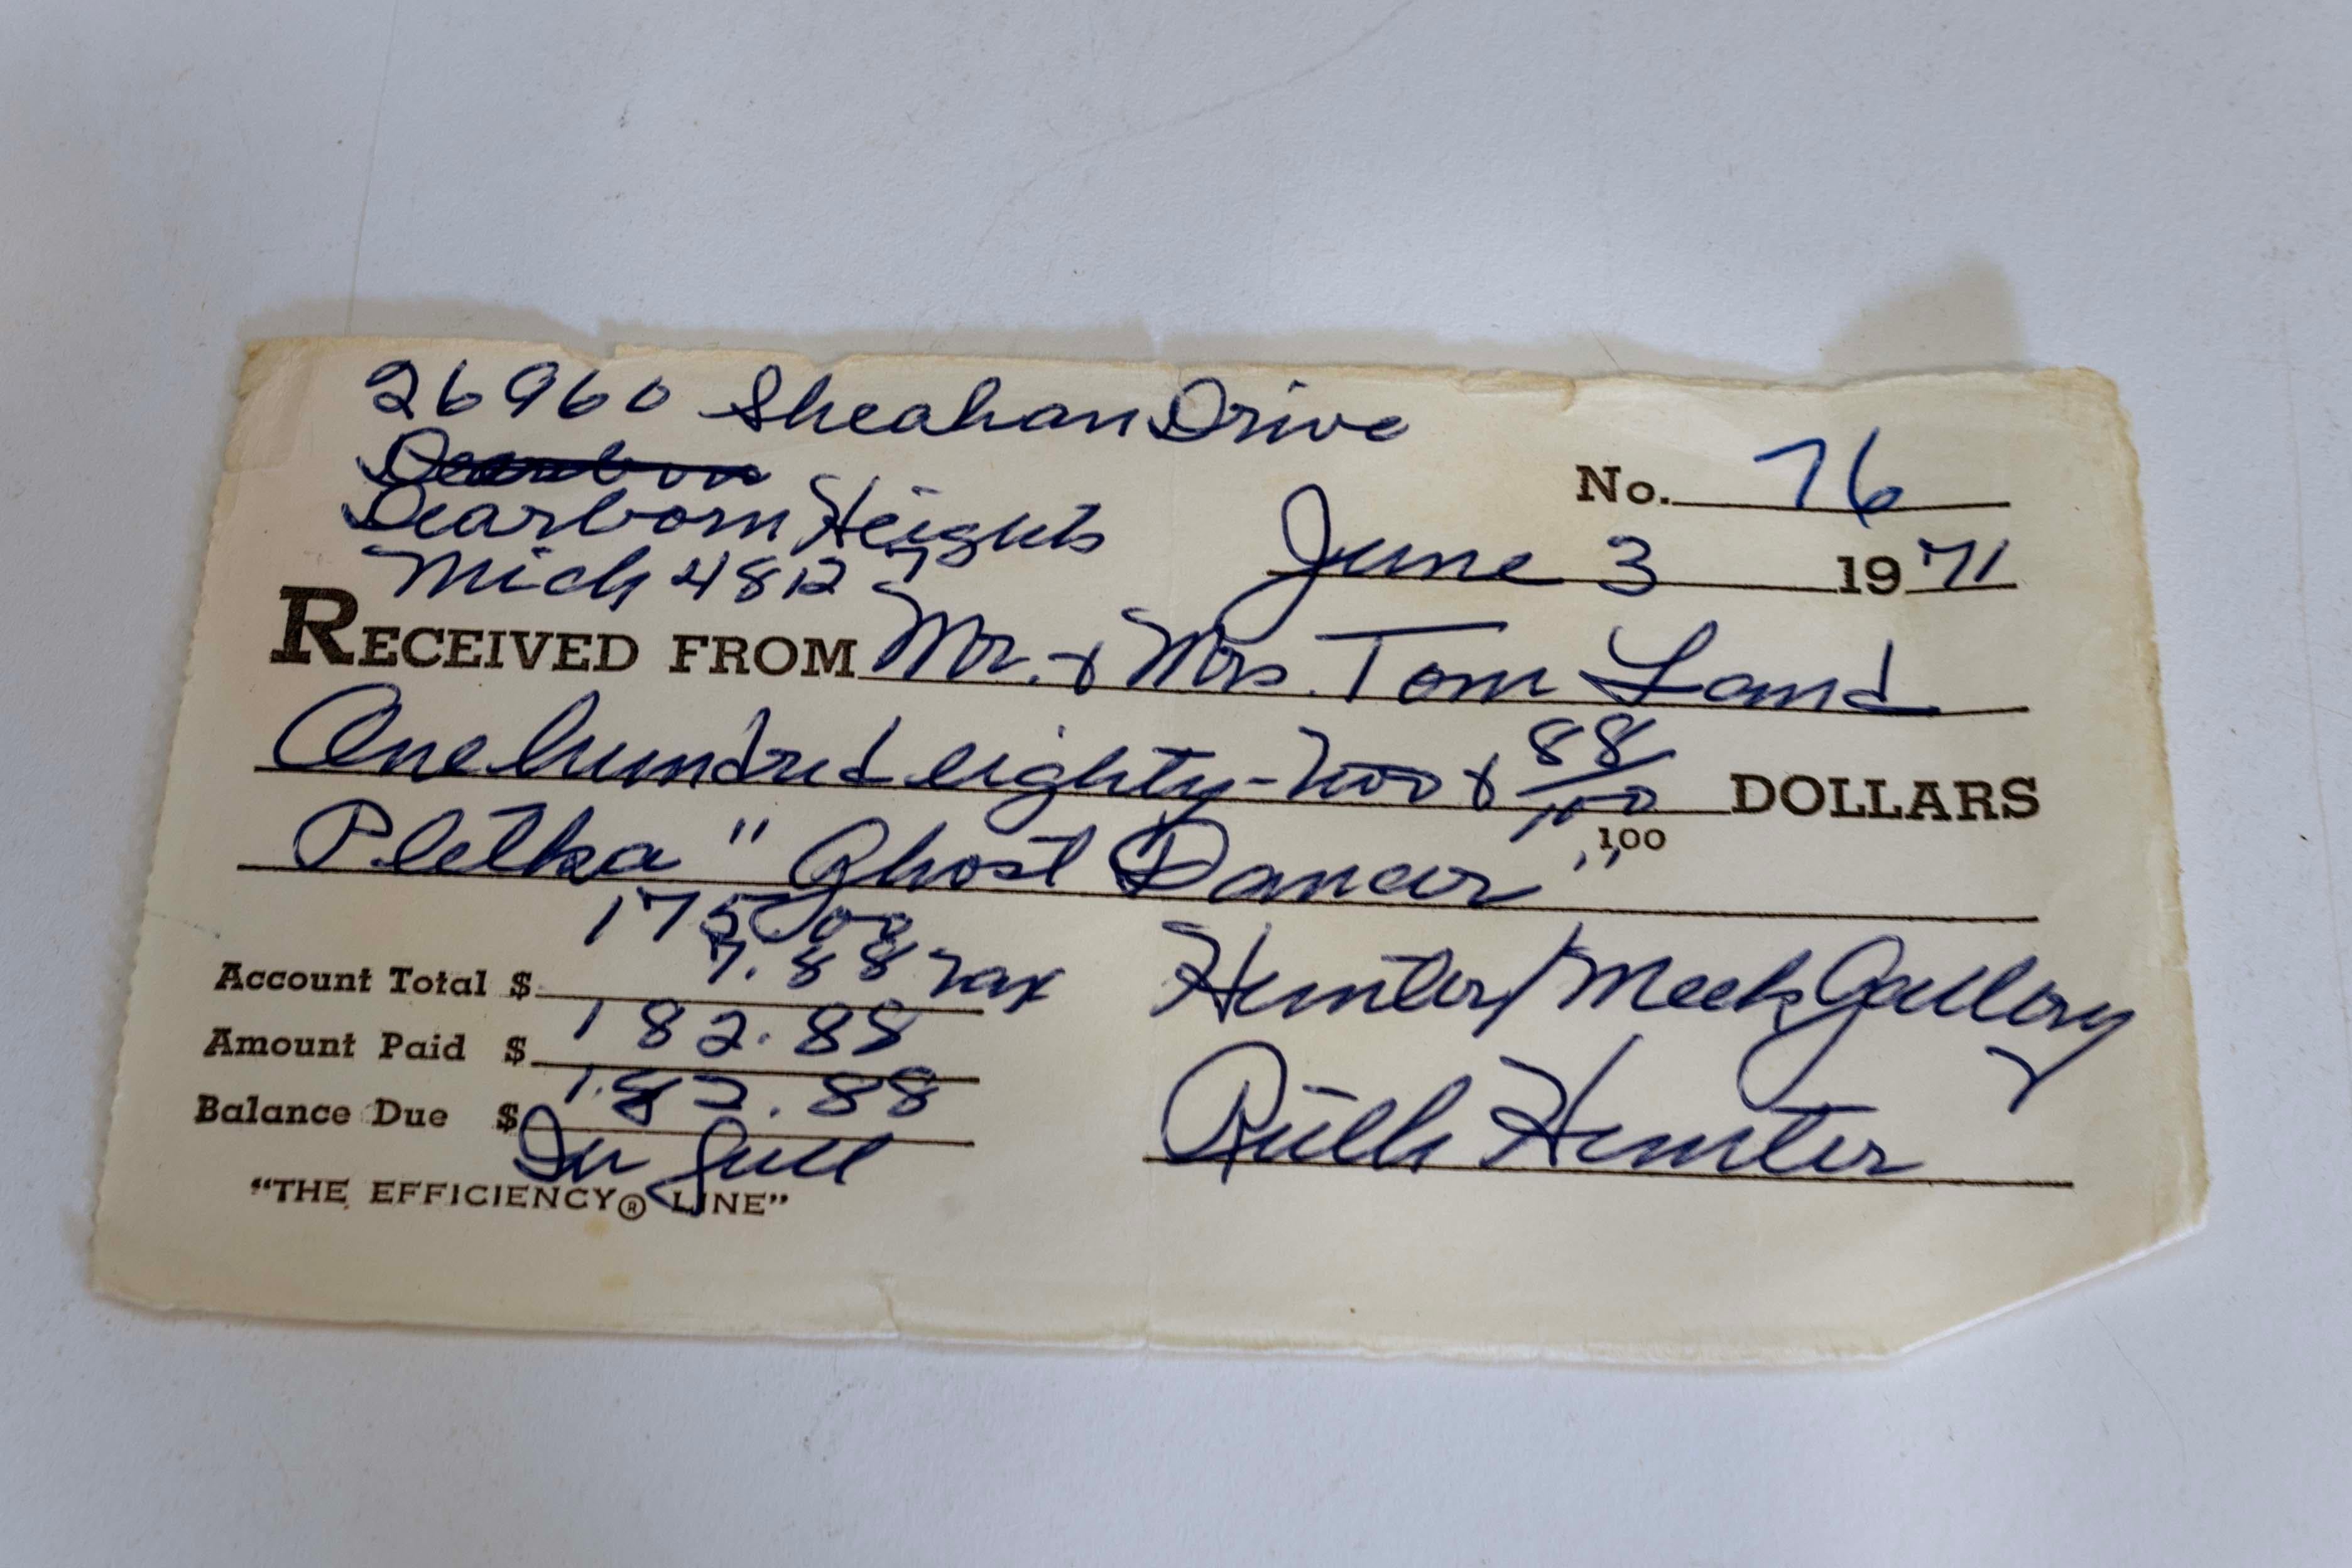 26960 Sheahan Drive
Dearborn
Dearborn Heights
Mich 48127
No. 76
June 3 1971
RECEIVED FROM Mr. & Mrs. Tom Land
One hundred eighty-two & 88/100 DOLLARS
100
Pletka "Ghost Dancer"
175.00
7.88 Tax
Account Total $ 182.88
Amount Paid $ 182.88
Balance Due $ In full
Hunter/Meek Gallery
Ruth Hunter
"THE EFFICIENCY® LINE"